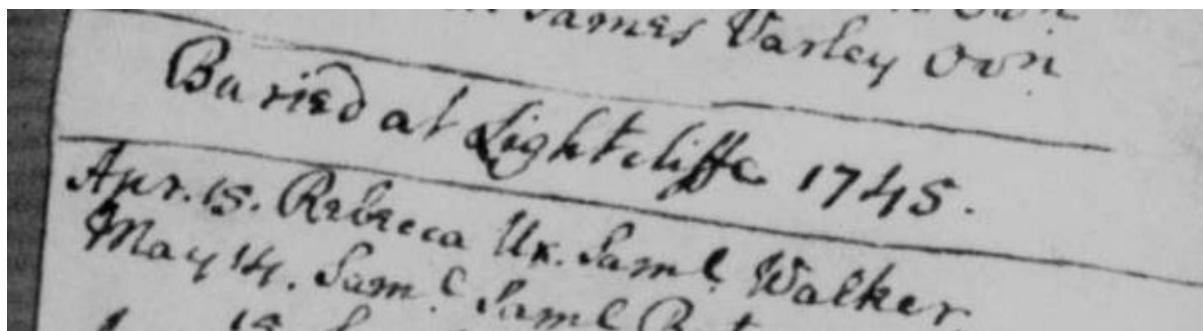 James Varley Ovin
Buried at Lightcliffe 1745.
Apr. 15. Rebecca Ux. Saml. Walker
May 14. Saml. Saml